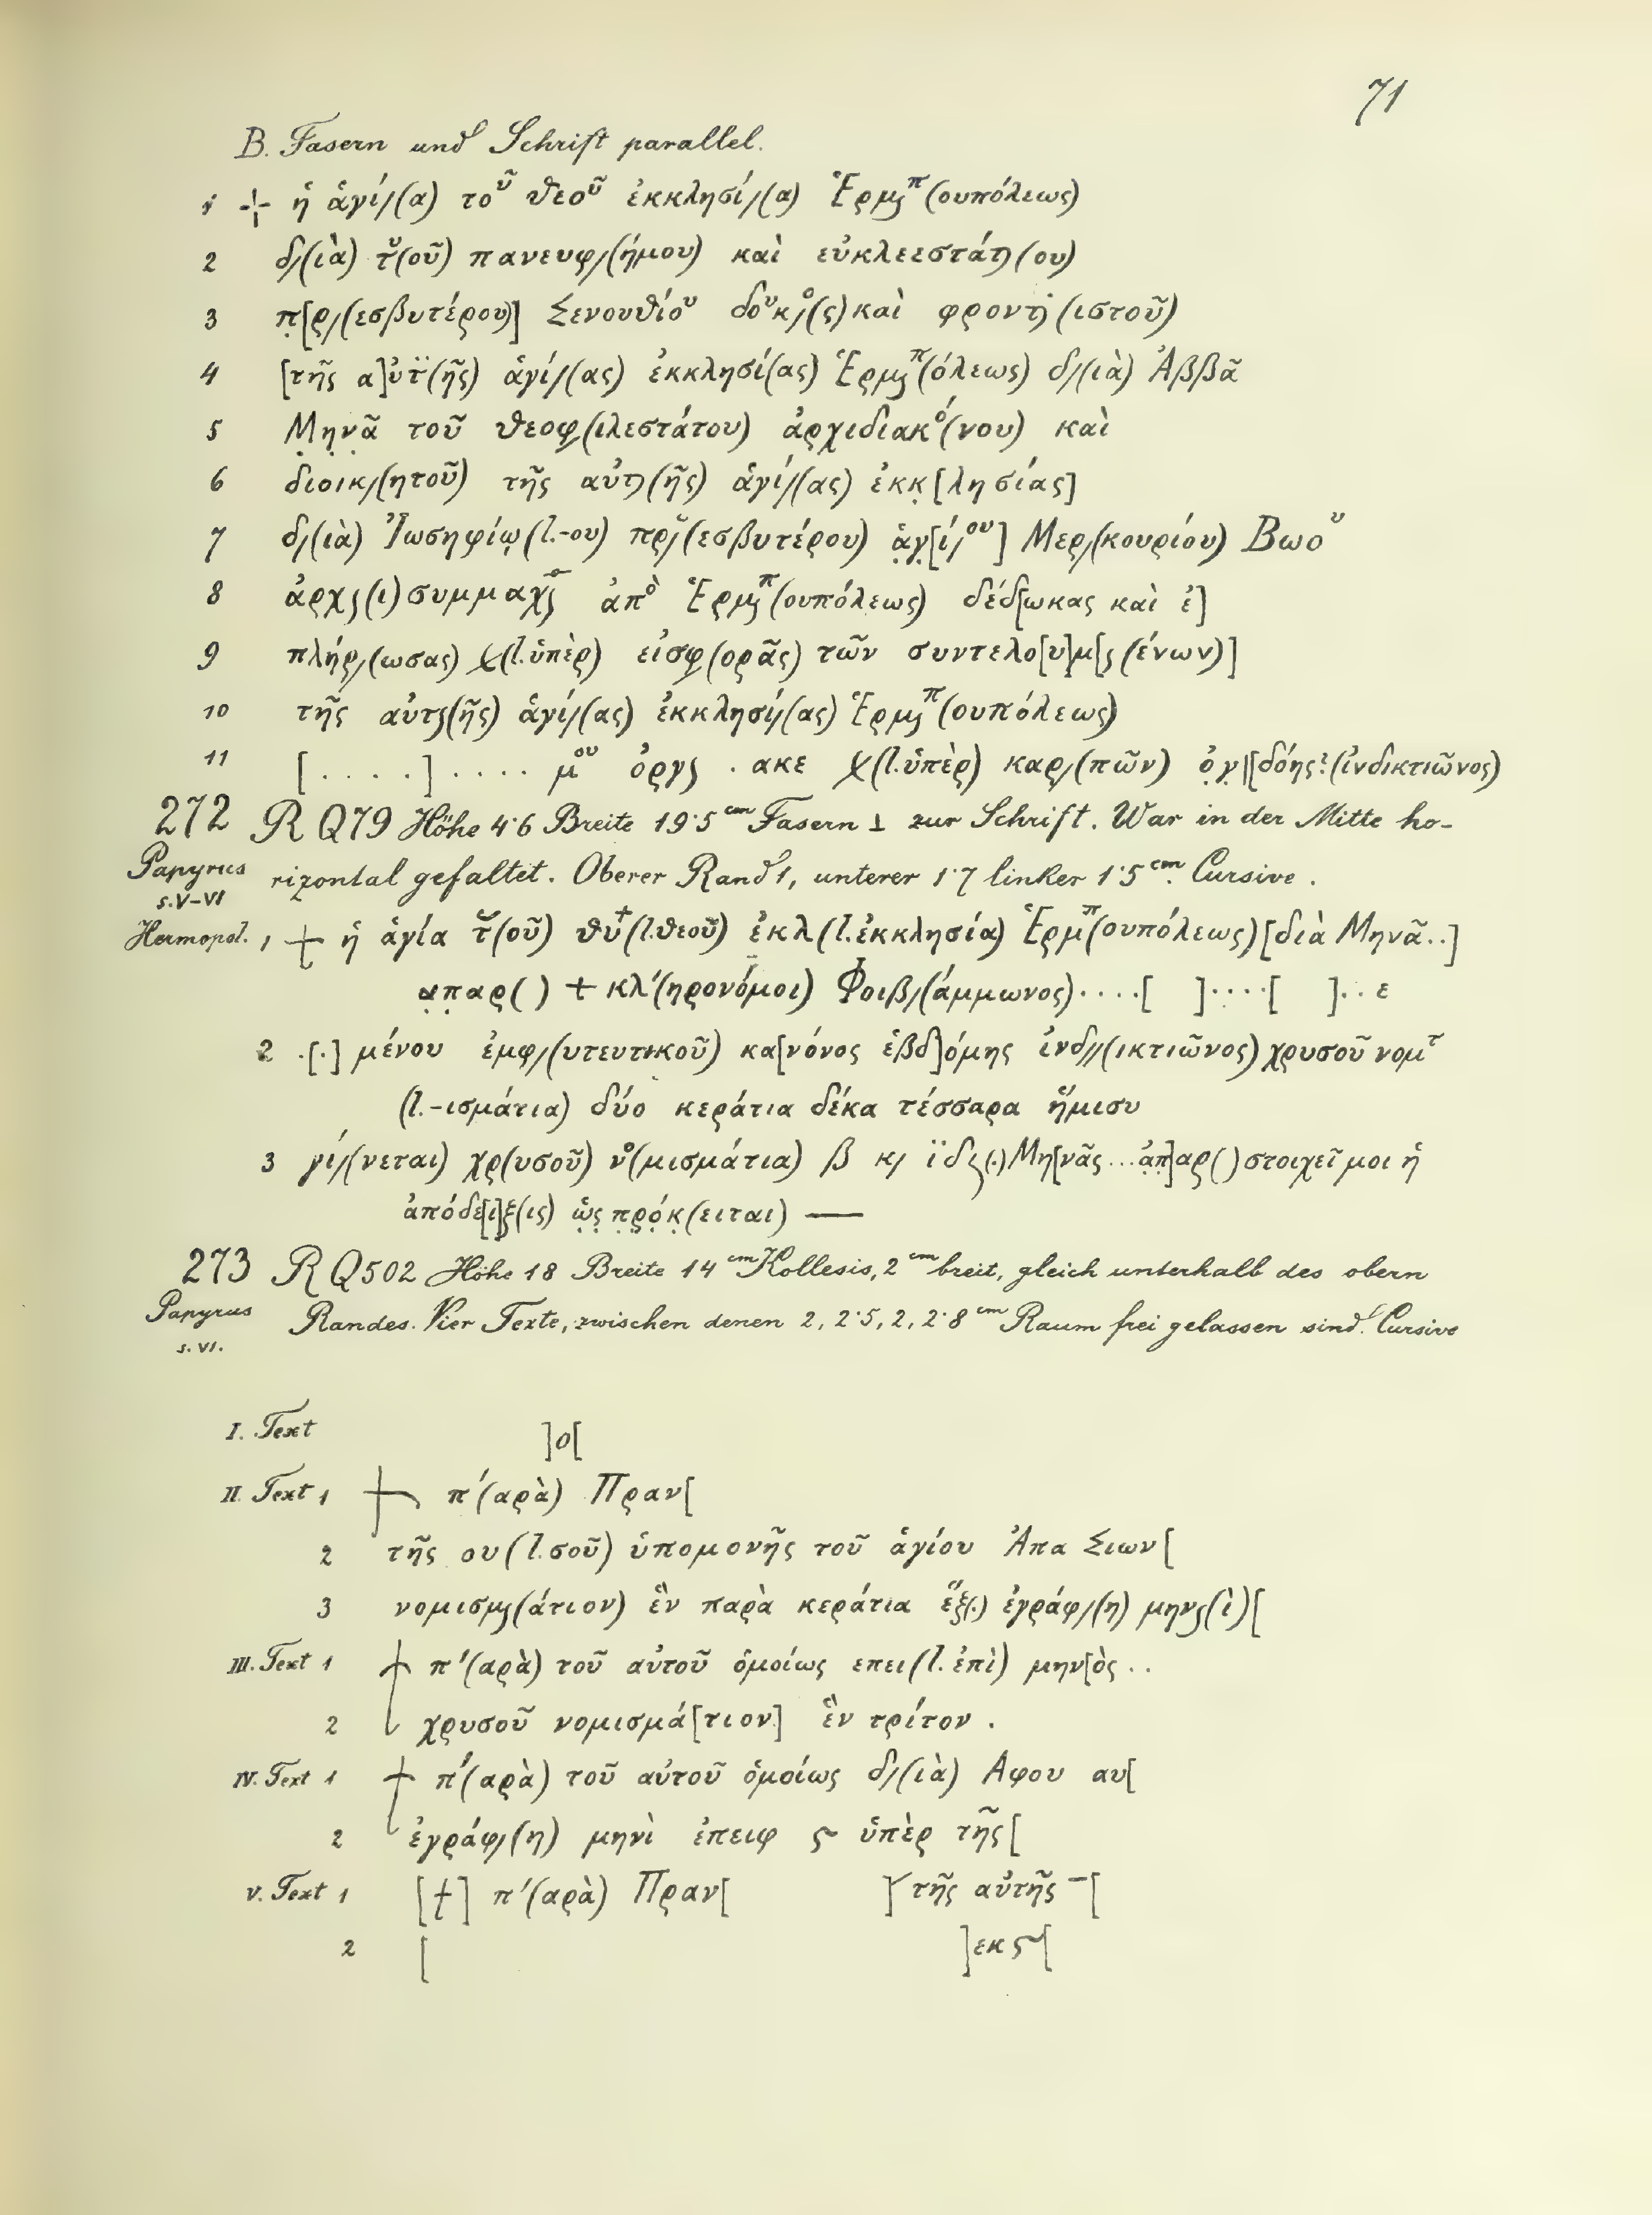 71
B. Fasern und Schrift parallel.
1 ⳨ ἡ ἁγί/(α) τοῦ θεοῦ ἐκκλησί/(α) Ἑρμςπ(ουπόλεως)
2 δ/(ιὰ) τ̆(οῦ) πανευφ/(ήμου) καὶ εὐκλεεστάτ)(ου)
3 π̣[ρ/(εσβυτέρου)] Σενουθίου δουκ/ο(ς) καὶ φροντ)(ιστοῦ)
4 [τῆς α]ὐτ̈(ῆς) ἁγί/(ας) ἐκκλησί(ας) Ἑρμςπ(όλεως) δ/(ιὰ) Ἀββᾶ
5 Μ̣η̣ν̣ᾶ τοῦ θεοφ(ιλεστάτου) ἀρχιδιακό(νου) καὶ
6 διοικ/(ητοῦ) τῆς αὐτ)(ῆς) ἁγί/(ας) ἐκκ̣[λησίας]
7 δ/(ιὰ) Ἰωσηφίῳ(l.-ου) πρ/(εσβυτέρου) ἁ̣γ̣[ί/ου] Μερ/(κουρίου) Βωου
8 ἀρχς(ι)συμμαχς ἀπὸ Ἑρμςπ(ουπόλεως) δέδ[ωκας καὶ ἐ]
9 πλήρ/(ωσας) χ(l.ὑπὲρ) εἰσφ(ορᾶς) τῶν συντελο[υ]μ[ς(ένων)]
10 τῆς αὐτς(ῆς) ἁγί/(ας) ἐκκλησί/(ας) Ἑρμςπ(ουπόλεως)
11 [. . . . .] . . . . μου ὀργς . ακε χ(l.ὑπὲρ) καρ/(πῶν) ὀ̣γ̣[δόης (ἰνδικτιῶνος)
272 R Q79 Höhe 4·6 Breite 19·5 cm Fasern ⊥ zur Schrift. War in der Mitte ho-
Papyrus rizontal gefaltet. Oberer Rand 1, unterer 1·7 linker 1·5 cm. Cursive.
s.V-VI
Hermopol. 1 + ἡ ἁγία τ̆(οῦ) θυ(l.θεοῦ) ἐκλ(l.ἐκκλησία) Ἑρμπ(ουπόλεως)[διὰ Μηνᾶ..]
α̣π̣αρ( ) + κλ'(ηρονόμοι) Φοιβ/(άμμωνος)....[ ]....[ ]..ε
2 .[.] μένου ἐμφ/(υτευτικοῦ) κα[νόνος ἑβδ]όμης ἰνδ//(ικτιῶνος) χρυσοῦ νομτ
(l.-ισμάτια) δύο κεράτια δέκα τέσσαρα ἥμισυ
3 γί/(νεται) χρ(υσοῦ) νο(μισμάτια) β κ/ ϊδς(.) Μη[νᾶς...ἀ̣π̣]αρ( ) στοιχεῖ μοι ἡ
ἀπόδε[ι]ξ(ις) ὡ̣ς̣ π̣ρ̣ό̣κ̣(ειται) —
273 R Q502 Höhe 18 Breite 14 cm Kollesis, 2 cm breit, gleich unterhalb des obern
Papyrus Randes. Vier Texte, zwischen denen 2, 2·5, 2, 2·8 cm Raum frei gelassen sind. Cursive
s. VI.
I. Text ]ο[
II. Text 1 + π'(αρὰ) Πραν[
2 τῆς ου(l.σοῦ) ὑπομονῆς τοῦ ἁγίου Ἀπα Σιων[
3 νομισμς(άτιον) ἓν παρὰ κεράτια ἕξ(.) ἐγράφ/(η) μηνς(ὶ)[
III. Text 1 + π'(αρὰ) τοῦ αὐτοῦ ὁμοίως επει(l.ἐπὶ) μην[ὸς . .
2 χρυσοῦ νομισμά[τιον] ἓν τρίτον .
IV. Text 1 + π'(αρὰ) τοῦ αὐτοῦ ὁμοίως δ/(ιὰ) Αφου αυ[
2 ἐγράφ/(η) μηνὶ ἐπειφ ϛ ὑπὲρ τῆς[
V. Text 1 [+] π'(αρὰ) Πραν[ ] τῆς αὐτῆς –[
2 [ ]εκϛ[